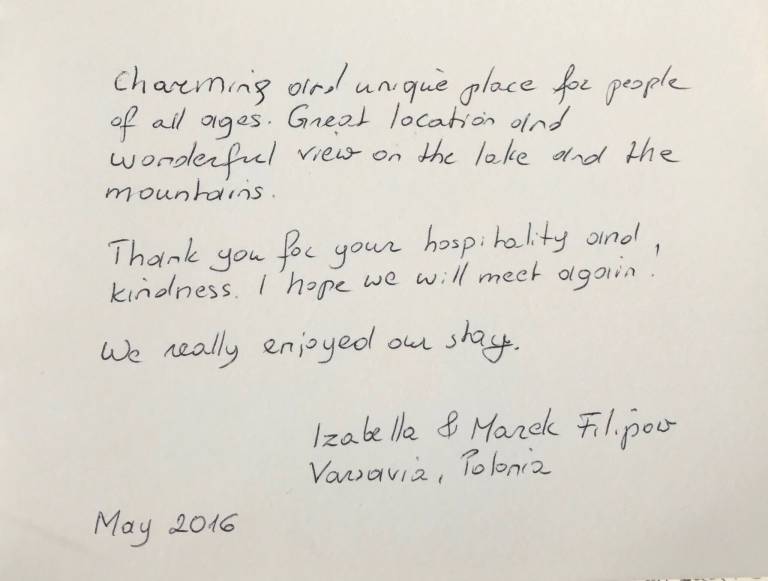 Charming and unique place for people
of all ages. Great location and
wonderful view on the lake and the
mountains.
Thank you for your hospitality and
kindness. I hope we will meet again!
We really enjoyed our stay.
Izabella & Marek Filipow
Varsavia, Polonia
May 2016